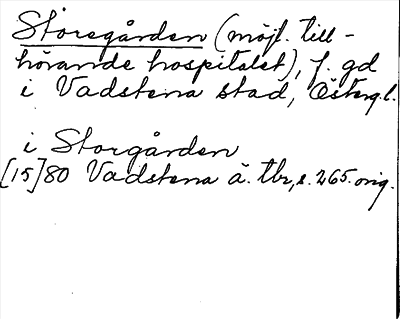 Storegården (möjl. till-
hörande hospitalet), f. gd
i Vadstena stad, Österg.l.
i Storgården
[15]80 Vadstena ä. tbr, s. 265. orig.